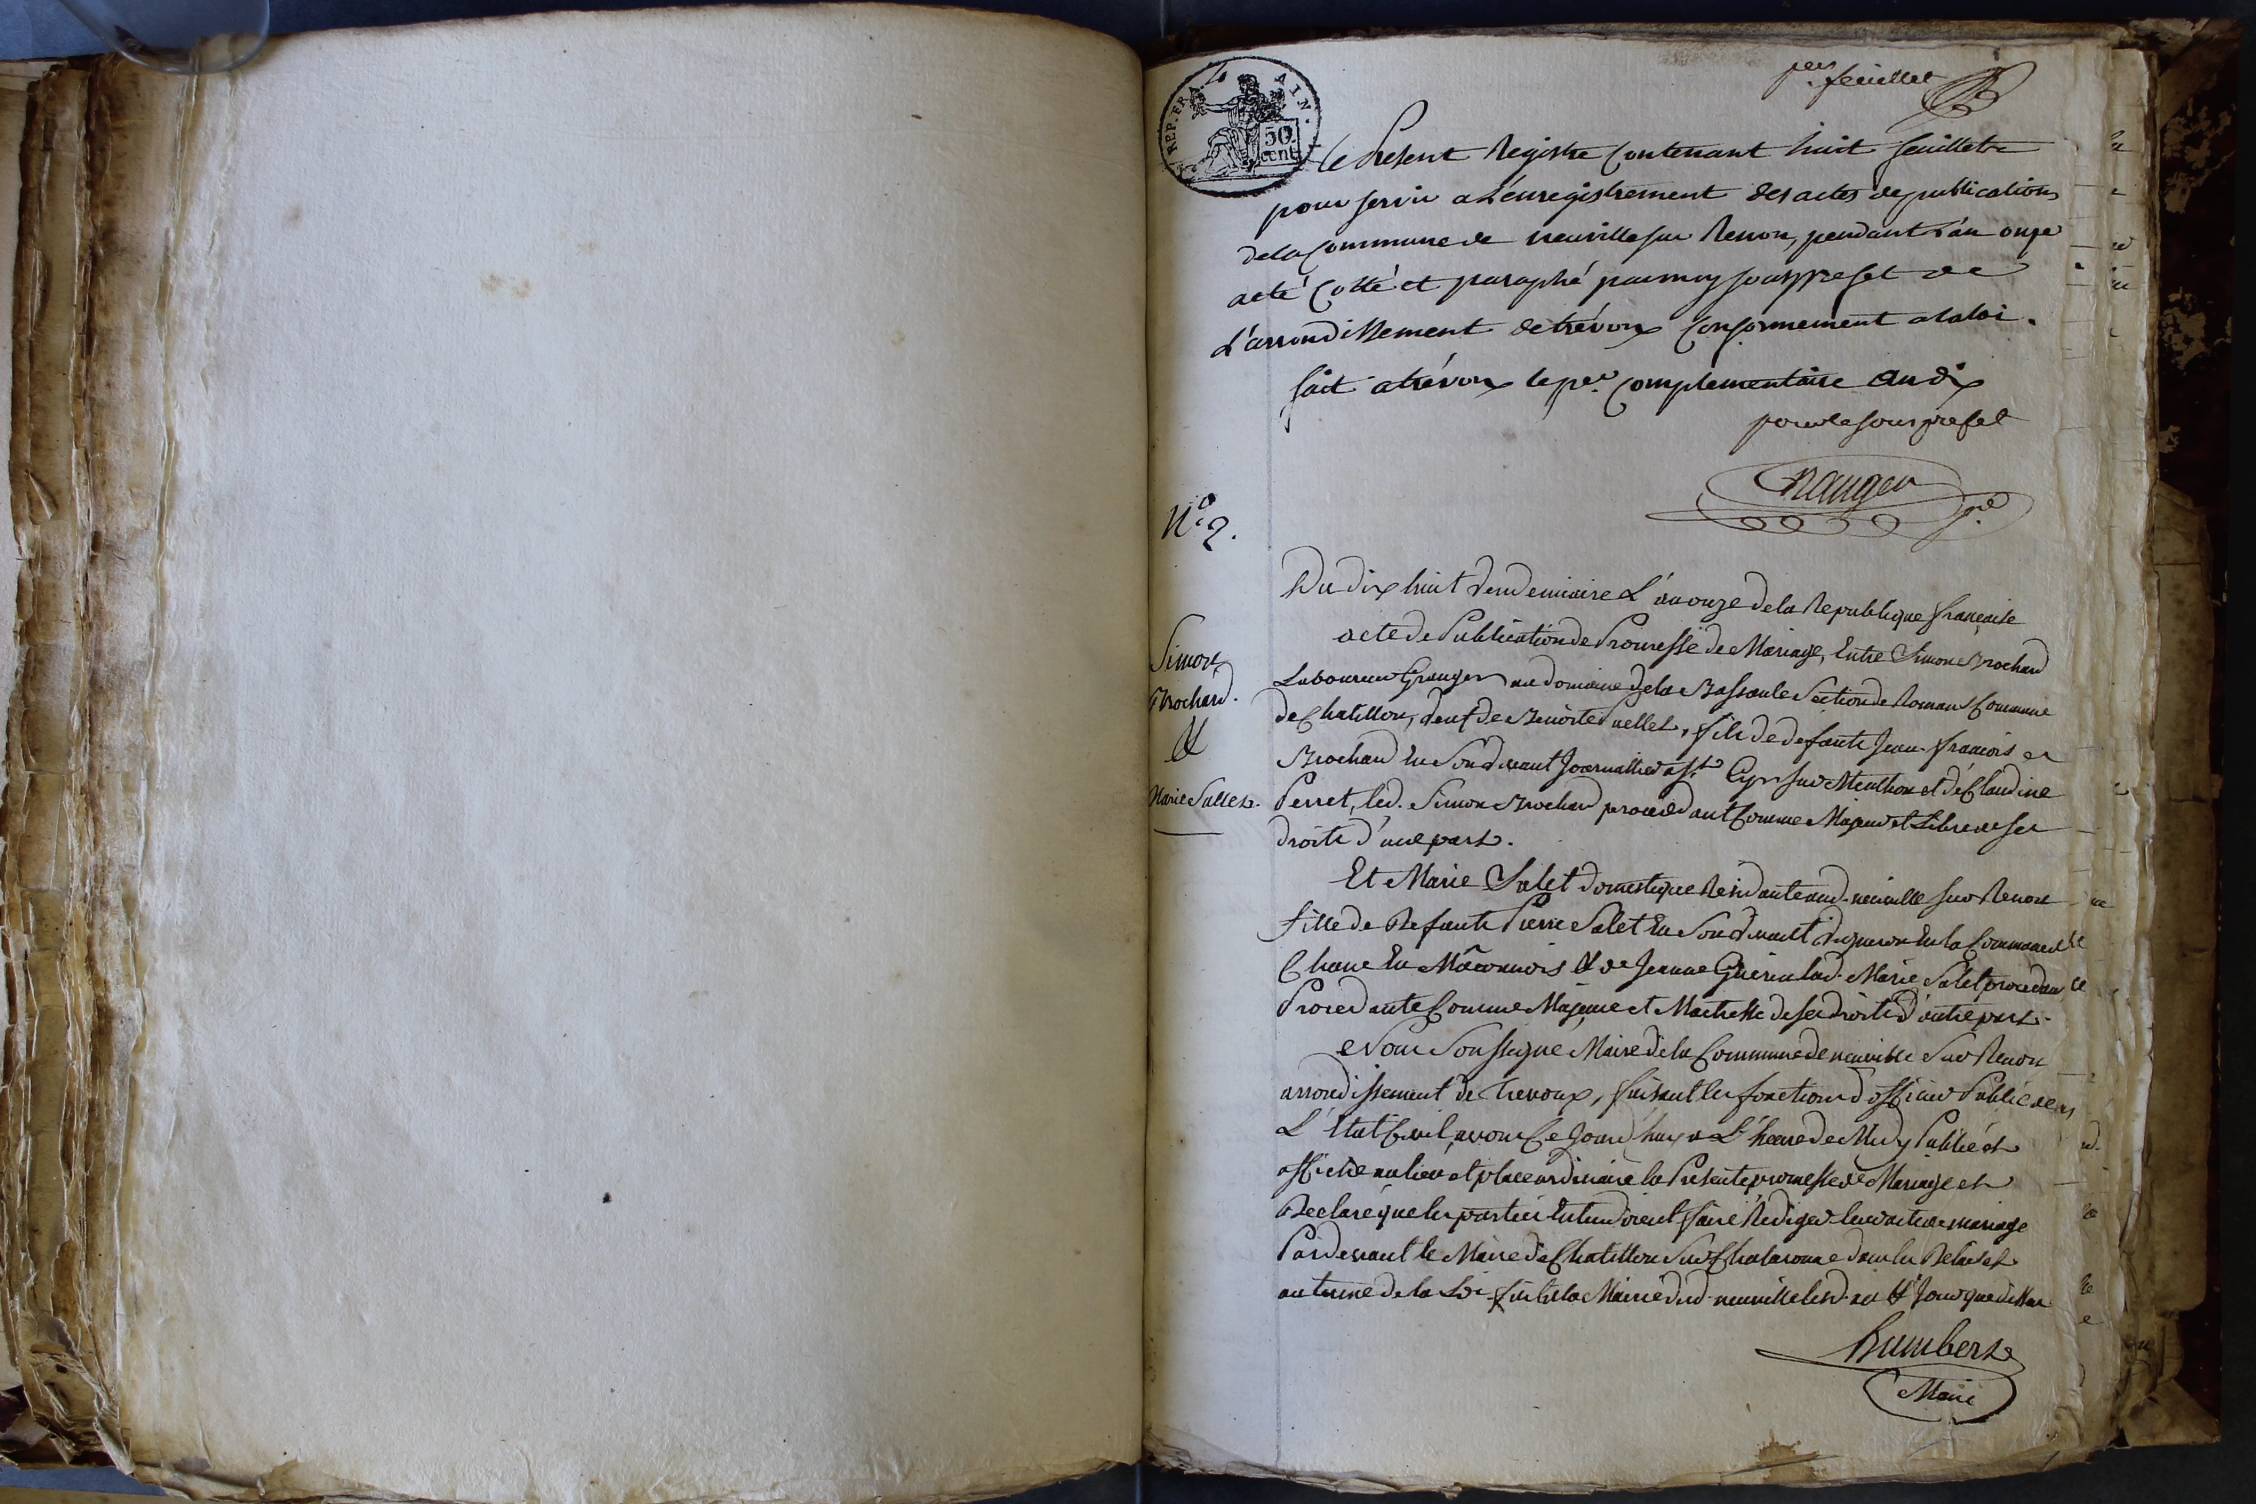 REP. FRA. AIN.
50 cent
per feuillet
Le Present Registre Contenant huit feuillets
pour servir a L'enregistrement des actes de publications
de la Commune de neuville sur Renon, pendant l'an onze
a été Cotté et paraphé par moy souspréfet de
L'arrondissement de trévoux Conformement a la loi.
fait a trévoux le per. Complementaire an dix
pour le sous prefet
N° 2.
Du dix huit Vendemiaire L'an onze de la Republique française
Simon
Brochard.
&
Marie Sallet.
acte de Publication de Promesse de Mariage, Entre Simon Brochard
Laboureur Granger au domaine de la Bassoule Section de Romans Commune
de Chatillon, Veuf de Benoite, fils de defunts Jean-françois
Brochard En Son Vivant Journallier a St Cyr sur Menthon et de Claudine
Perret, led. Simon Brochard procédant Comme Majeur et Libre de ses
droits d'une part.
Et Marie Salet domestique Residante aud. neuville sur Renon
fille de Defunts Pierre Salet En Son Vivant Vigneron En la Commune de
Chane En Mâconnois & de Jeanne Guérin lad. Marie Salet procedan
Procedante Comme Majeure et Maitresse de ses droits d'autre part.
Nous Soussigné Maire de la Commune de neuville sur Renon
arrondissement de Trevoux, faisant les fonctions d'officier Public de
L'État Civil, avons Ce Jourd'huy a L'heure de Midy Publié et
affiché au lieu et place ordinaire la Presente promesse de Mariage et
Declaré que les parties Entendoient faire Rediger leur acte de mariage
Pardevant le Maire de Chatillon sur Chalaronne dans les Delais et
au terme de la Loi fait En la Mairie dud. neuville lesd. an & Jour que dessus
Humbert
Maire